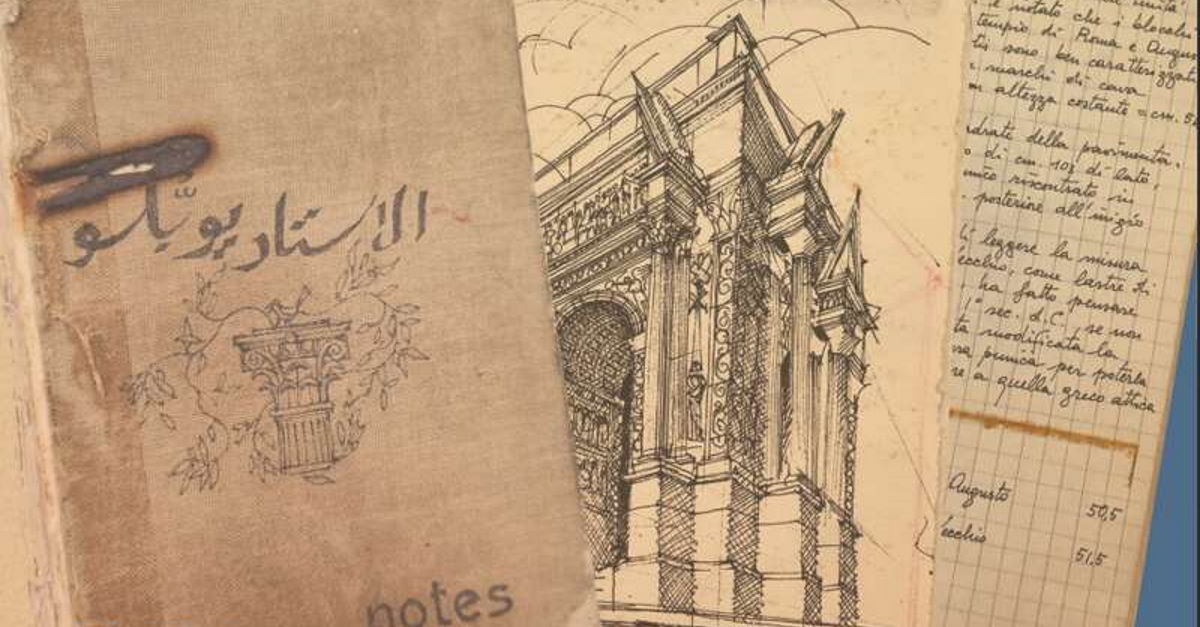 الاستاد يو يّلو
notes
unità
è notato che i blocchi
tempio di Roma e Augus
tis sono ben caratterizzati
i marchi di cava
altezza costante = cm. 5
drate della pavimenta.
di cm. 103 di lato,
unico riscontrato in
posteriore all'inizio
leggere la misura
ecchio, come lastre di
ha fatto pensare
1° sec. d.C. se non
ta modificata la
punica per poterla
re a quella greco attica
Augusto 50,5
ecchio 51,5